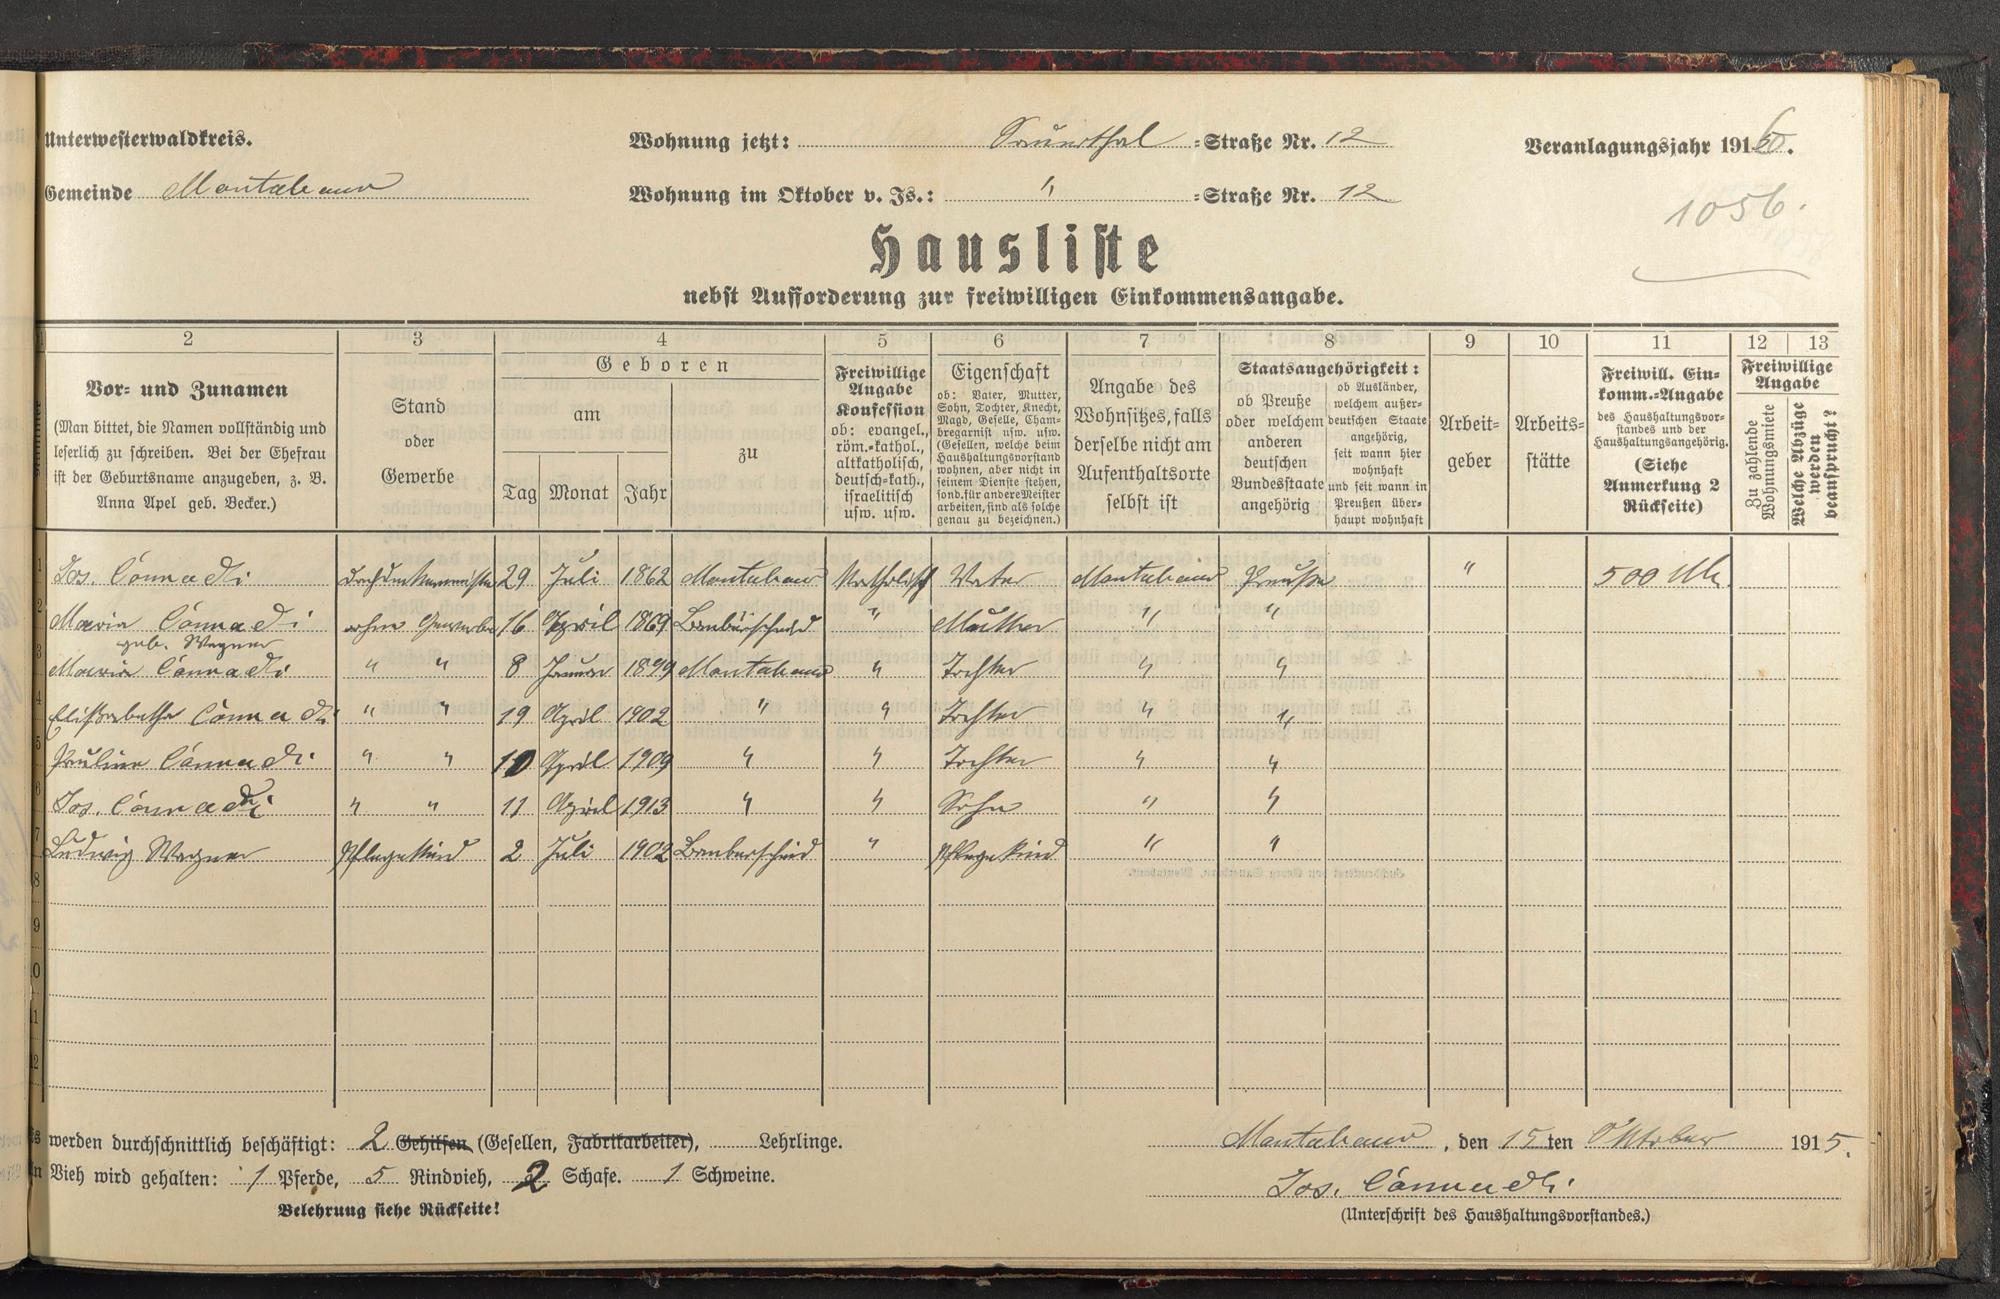 Unterwesterwaldkreis.
Wohnung jetzt: Sauerthal =Straße Nr. 12
Veranlagungsjahr 1916.
Gemeinde Montabaur
Wohnung im Oktober v. Js.: " =Straße Nr. 12
1056.
Hausliste
nebst Aufforderung zur freiwilligen Einkommensangabe.
2 3 4 5 6 7 8 9 10 11 12 13
Vor- und Zunamen
(Man bittet, die Namen vollständig und
leserlich zu schreiben. Bei der Ehefrau
ist der Geburtsname anzugeben, z. B.
Anna Apel geb. Becker.)
Stand
oder
Gewerbe
Geboren
am
Tag Monat Jahr
zu
Freiwillige
Angabe
Konfession
ob: evangel.,
röm.-kathol.,
altkatholisch,
deutsch-kath.,
israelitisch
usw. usw.
Eigenschaft
ob: Vater, Mutter,
Sohn, Tochter, Knecht,
Magd, Geselle, Cham-
bregarnist usw. usw.
(Gesellen, welche beim
Haushaltungsvorstand
wohnen, aber nicht in
seinem Dienste stehen,
sond. für andere Meister
arbeiten, sind als solche
genau zu bezeichnen.)
Angabe des
Wohnsitzes, falls
derselbe nicht am
Aufenthaltsorte
selbst ist
Staatsangehörigkeit:
ob Preuße
oder welchem
anderen
deutschen
Bundesstaate
angehörig
ob Ausländer,
welchem außer-
deutschen Staate
angehörig,
seit wann hier
wohnhaft
und seit wann in
Preußen über-
haupt wohnhaft
Arbeit-
geber
Arbeits-
stätte
Freiwill. Ein-
komm.-Angabe
des Haushaltungsvor-
standes und der
Haushaltungsangehörig.
(Siehe
Anmerkung 2
Rückseite)
Freiwillige
Angabe
Zu zahlende
Wohnungsmiete
Welche Abzüge
werden
beansprucht?
1 Jos. Connadi 29 Juli 1862 Montabaur Katholisch Vater Montabaur Preuße " 500 Mk.
2 Maria Connadi ohne Gewerbe 16 April 1869 Mutter " "
geb. Wagner
3 Maria Connadi " " 8 Januar 1899 Montabaur " Tochter " "
4 Elisabetha Connadi " " 19 April 1902 " " Tochter " "
5 Pauline Connadi " " 10 April 1909 " " Tochter " "
6 Jos. Connadi " " 11 April 1913 " " Sohn " "
7 Ludwig Wagner Pflegekind 2 Juli 1902 " Pflegekind " "
8
9
10
11
12
werden durchschnittlich beschäftigt: 2 Gehilfen (Gesellen, Fabrikarbeiter), Lehrlinge.
Vieh wird gehalten: 1 Pferde, 5 Rindvieh, 2 Schafe. 1 Schweine.
Belehrung siehe Rückseite!
Montabaur, den 15ten Oktober 1915.
Jos. Connadi
(Unterschrift des Haushaltungsvorstandes.)